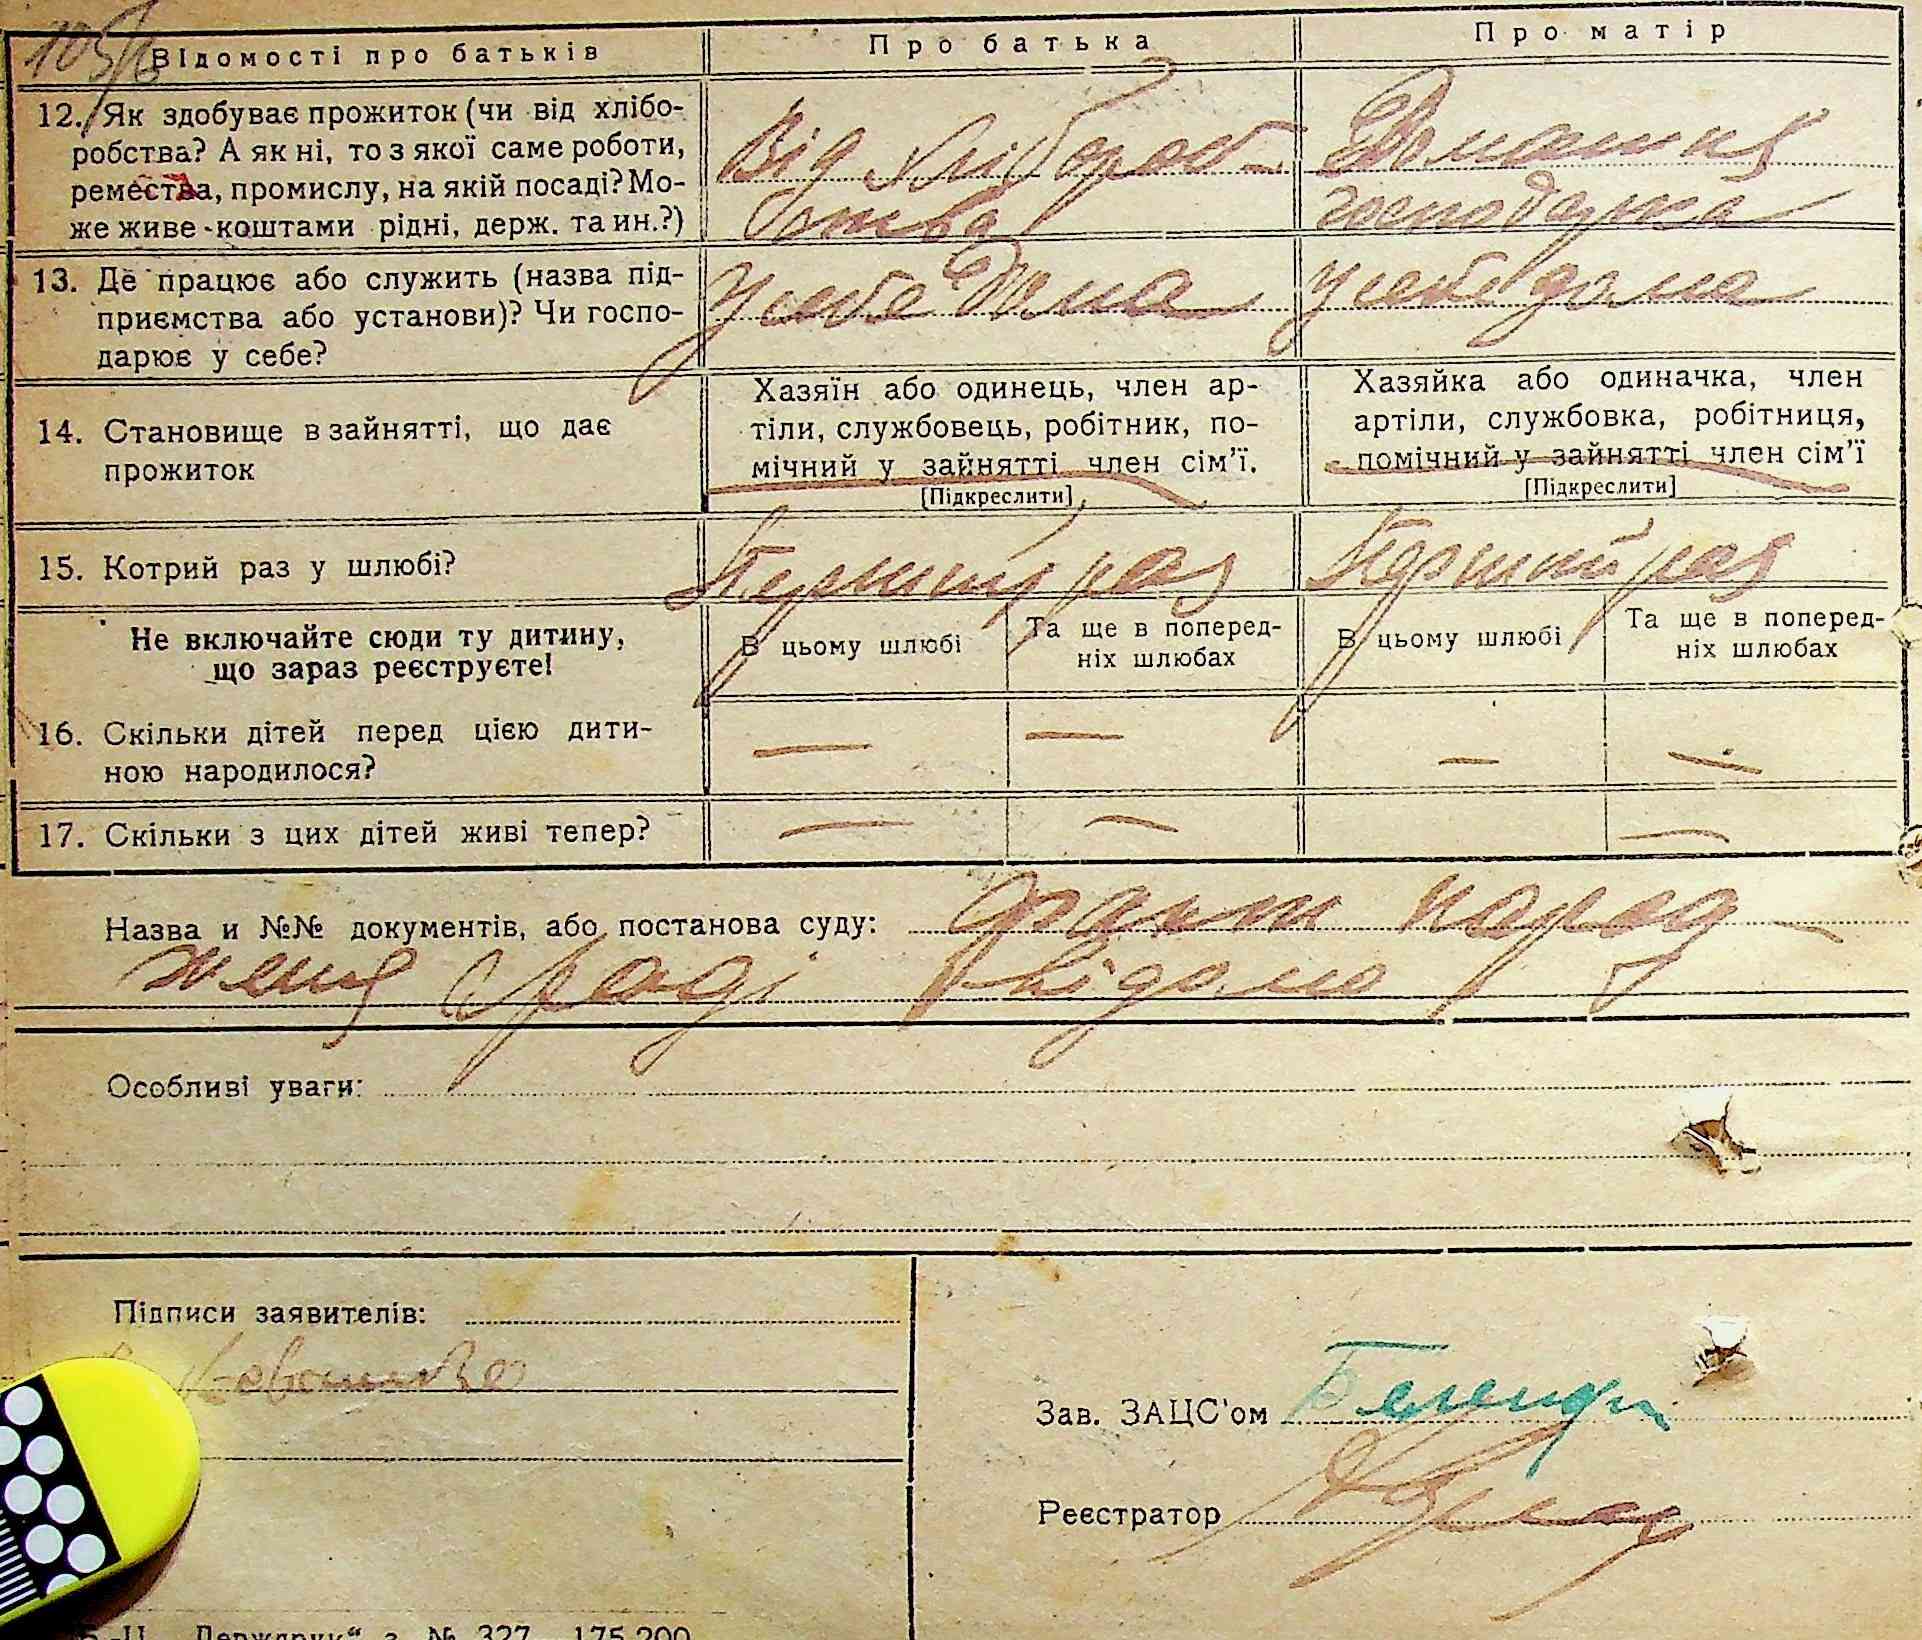 Відомості про батьків
Про батька
Про матір
12. Як здобуває прожиток (чи від хлібо-
робства? А як ні, то з якої саме роботи,
ремества, промислу, на якій посаді? Мо-
же живе коштами рідні, держ. та ин.?)
Від хлібороб-
ства
Домашня
господарка
13. Де працює або служить (назва під-
приємства або установи)? Чи госпо-
дарює у себе?
у себе дома
у себе дома
14. Становище в зайнятті, що дає
прожиток
Хазяїн або одинець, член ар-
тіли, службовець, робітник, по-
мічний у зайнятті член сім'ї.
[Підкреслити]
Хазяйка або одиначка, член
артіли, службовка, робітниця,
помічний у зайнятті член сім'ї
[Підкреслити]
15. Котрий раз у шлюбі?
Перший раз
Перший раз
Не включайте сюди ту дитину,
що зараз реєструєте!
В цьому шлюбі
Та ще в поперед-
ніх шлюбах
В цьому шлюбі
Та ще в поперед-
ніх шлюбах
16. Скільки дітей перед цією дити-
ною народилося?
— — — —
17. Скільки з цих дітей живі тепер?
— — —
Назва и №№ документів, або постанова суду: Факт народ
ження Раді відомо
Особливі уваги:
Підписи заявителів:
Зав. ЗАЦС'ом
Реєстратор
Держдрук“ з. № 327—175.200